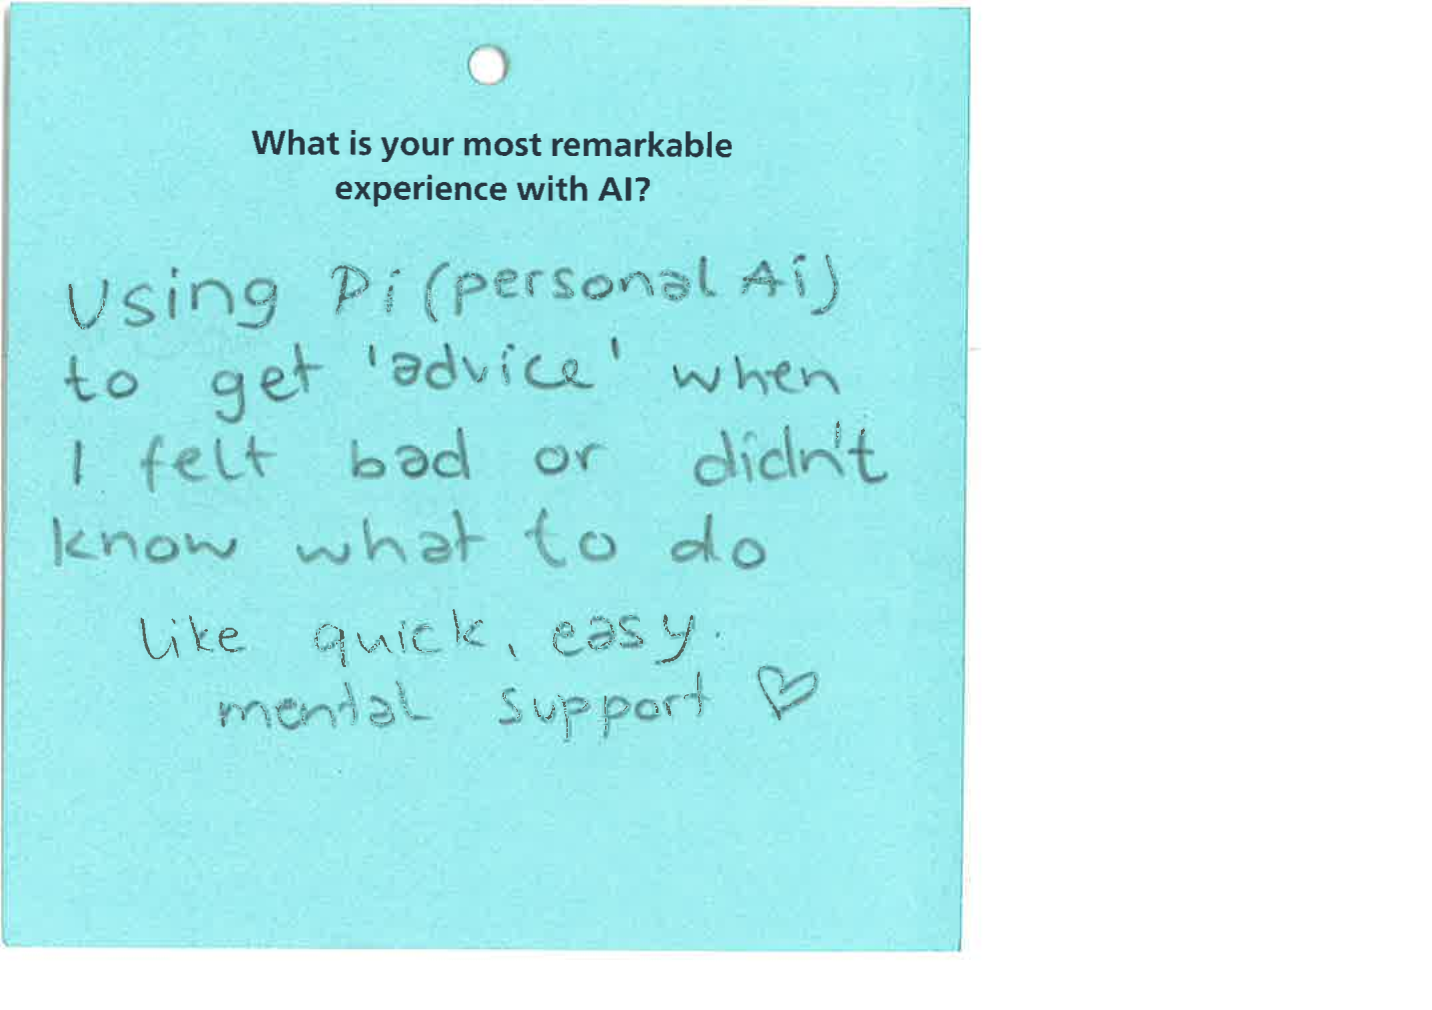 What is your most remarkable
experience with AI?
Using Pi (personal Ai)
to get 'advice' when
I felt bad or didn't
know what to do
like quick, easy.
mental support ♡